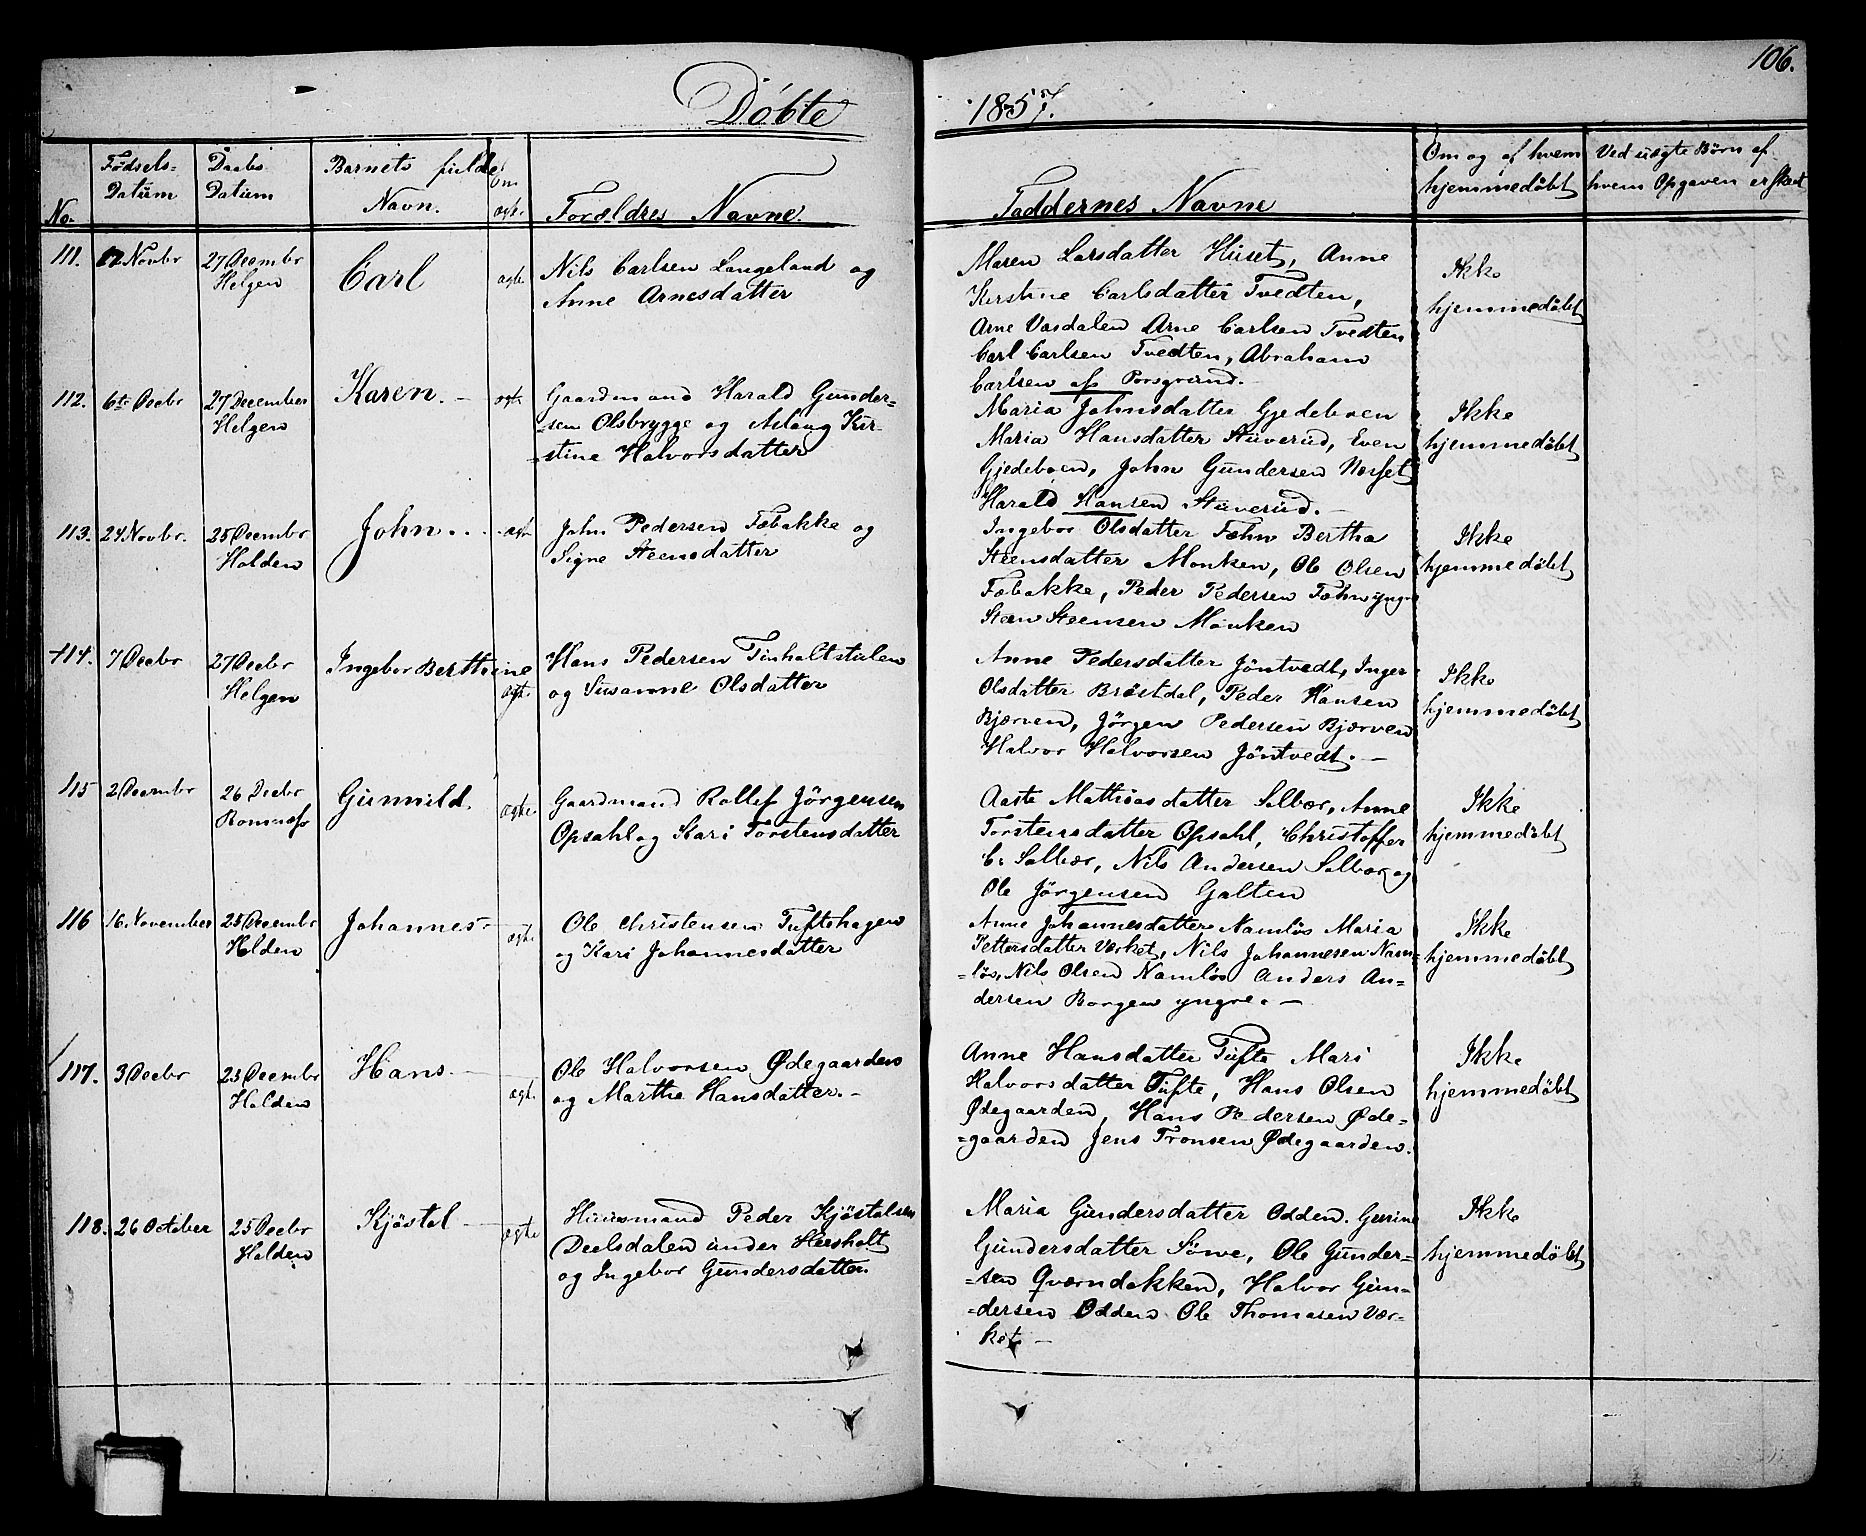 106.
Döbte 1857.
No. Fødsels- Datum Daabs Datum Barnets fulde Navn. Om ægte Forældres Navne. Faddernes Navne Om og af hvem hjemmedöbt Ved uægte Börn af hvem Opgaven er skeet
111. 12 Novbr 27 Decembr Helgen Carl ægte
Nils Carlsen Langeland og
Anne Arnesdatter
Maren Larsdatter Huset, Anne
Kirstine Carlsdatter Tvedten,
Arne Vasdalen Arne Carlsen Tvedten
Carl Carlsen Tvedten, Abraham
Carlsen af Porsgrund.
Ikke
hjemmedöbt
112. 6te Decbr 27 December Helgen Karen. ægte
Gaardmand Harald Gunder-
-sen Olsbrygge og Aslaug Kir-
-stine Halvorsdatter
Maria Johnsdatter Gjedeboen
Maria Hansdatter Stuverud, Even
Gjedeboen, John Gundersen Norset
Harald Hansen Stuverud.
Ikke
hjemmedöbt
113. 24 Novbr. 25 Decembr Holden John ægte
John Pedersen Fæbakke og
Signe Steensdatter
Ingebor Olsdatter Fæhn Bertha
Steensdatter Monken, Ole Olsen
Fæbakke, Peder Pedersen Fæhn yngre
Steen Steensen Monken
Ikke
hjemmedöbt
114. 7 Decbr 27 Decbr Helgen Ingebor Berthine ægte
Hans Pedersen Tinholtstulen
og Susanne Olsdatter
Anne Pedersdatter Jöntvedt, Inger
Olsdatter Bröstdal, Peder Hansen
Bjærven, Jörgen Pedersen Bjærven
Halvor Halvorsen Jöntvedt.
Ikke
hjemmedöbt
115 2 Decembr 26 Decbr Romnæs Gunnild. ægte
Gaardmand Rollef Jörgensen
Opsahl og Kari Torstensdatter
Aaste Mathisdatter Solbær, Anne
Torstensdatter Opsahl, Christoffer
C. Solbær, Nils Andersen Solbær og
Ole Jörgensen Galten
Ikke
hjemmedöbt
116 16. November 25 Decembr Holden Johannes ægte
Ole Christensen Tuftehagen
og Kari Johannesdatter
Anne Johannesdatter Namlös Maria
Pettersdatter Værket, Nils Johannesen Nam-
-lös, Nils Olsen Namlös Anders An-
dersen Borgen yngre.
Ikke
hjemmedöbt
117. 3 Decbr 25 Decembr Holden Hans ægte
Ole Halvorsen Ødegaarden
og Marthe Hansdatter.
Anne Hansdatter Tufte Mari
Halvorsdatter Tufte, Hans Olsen
Ødegaarden, Hans Pedersen Øde-
-gaarden Jens Tronsen Ødegaarden.
Ikke
hjemmedöbt
118. 26 October 25 Decbr Holden Kjöstol ægte
Huusmand Peder Kjöstolsen
Deelsdalen under Heisholt
og Ingebor Gundersdatter
Maria Gundersdatter Odden. Gurine
Gundersdatter Söwe, Ole Gunder-
-sen Qværndokken, Halvor Gun-
-dersen Odden Ole Thomasen Vær-
ket
Ikke
hjemmedöbt